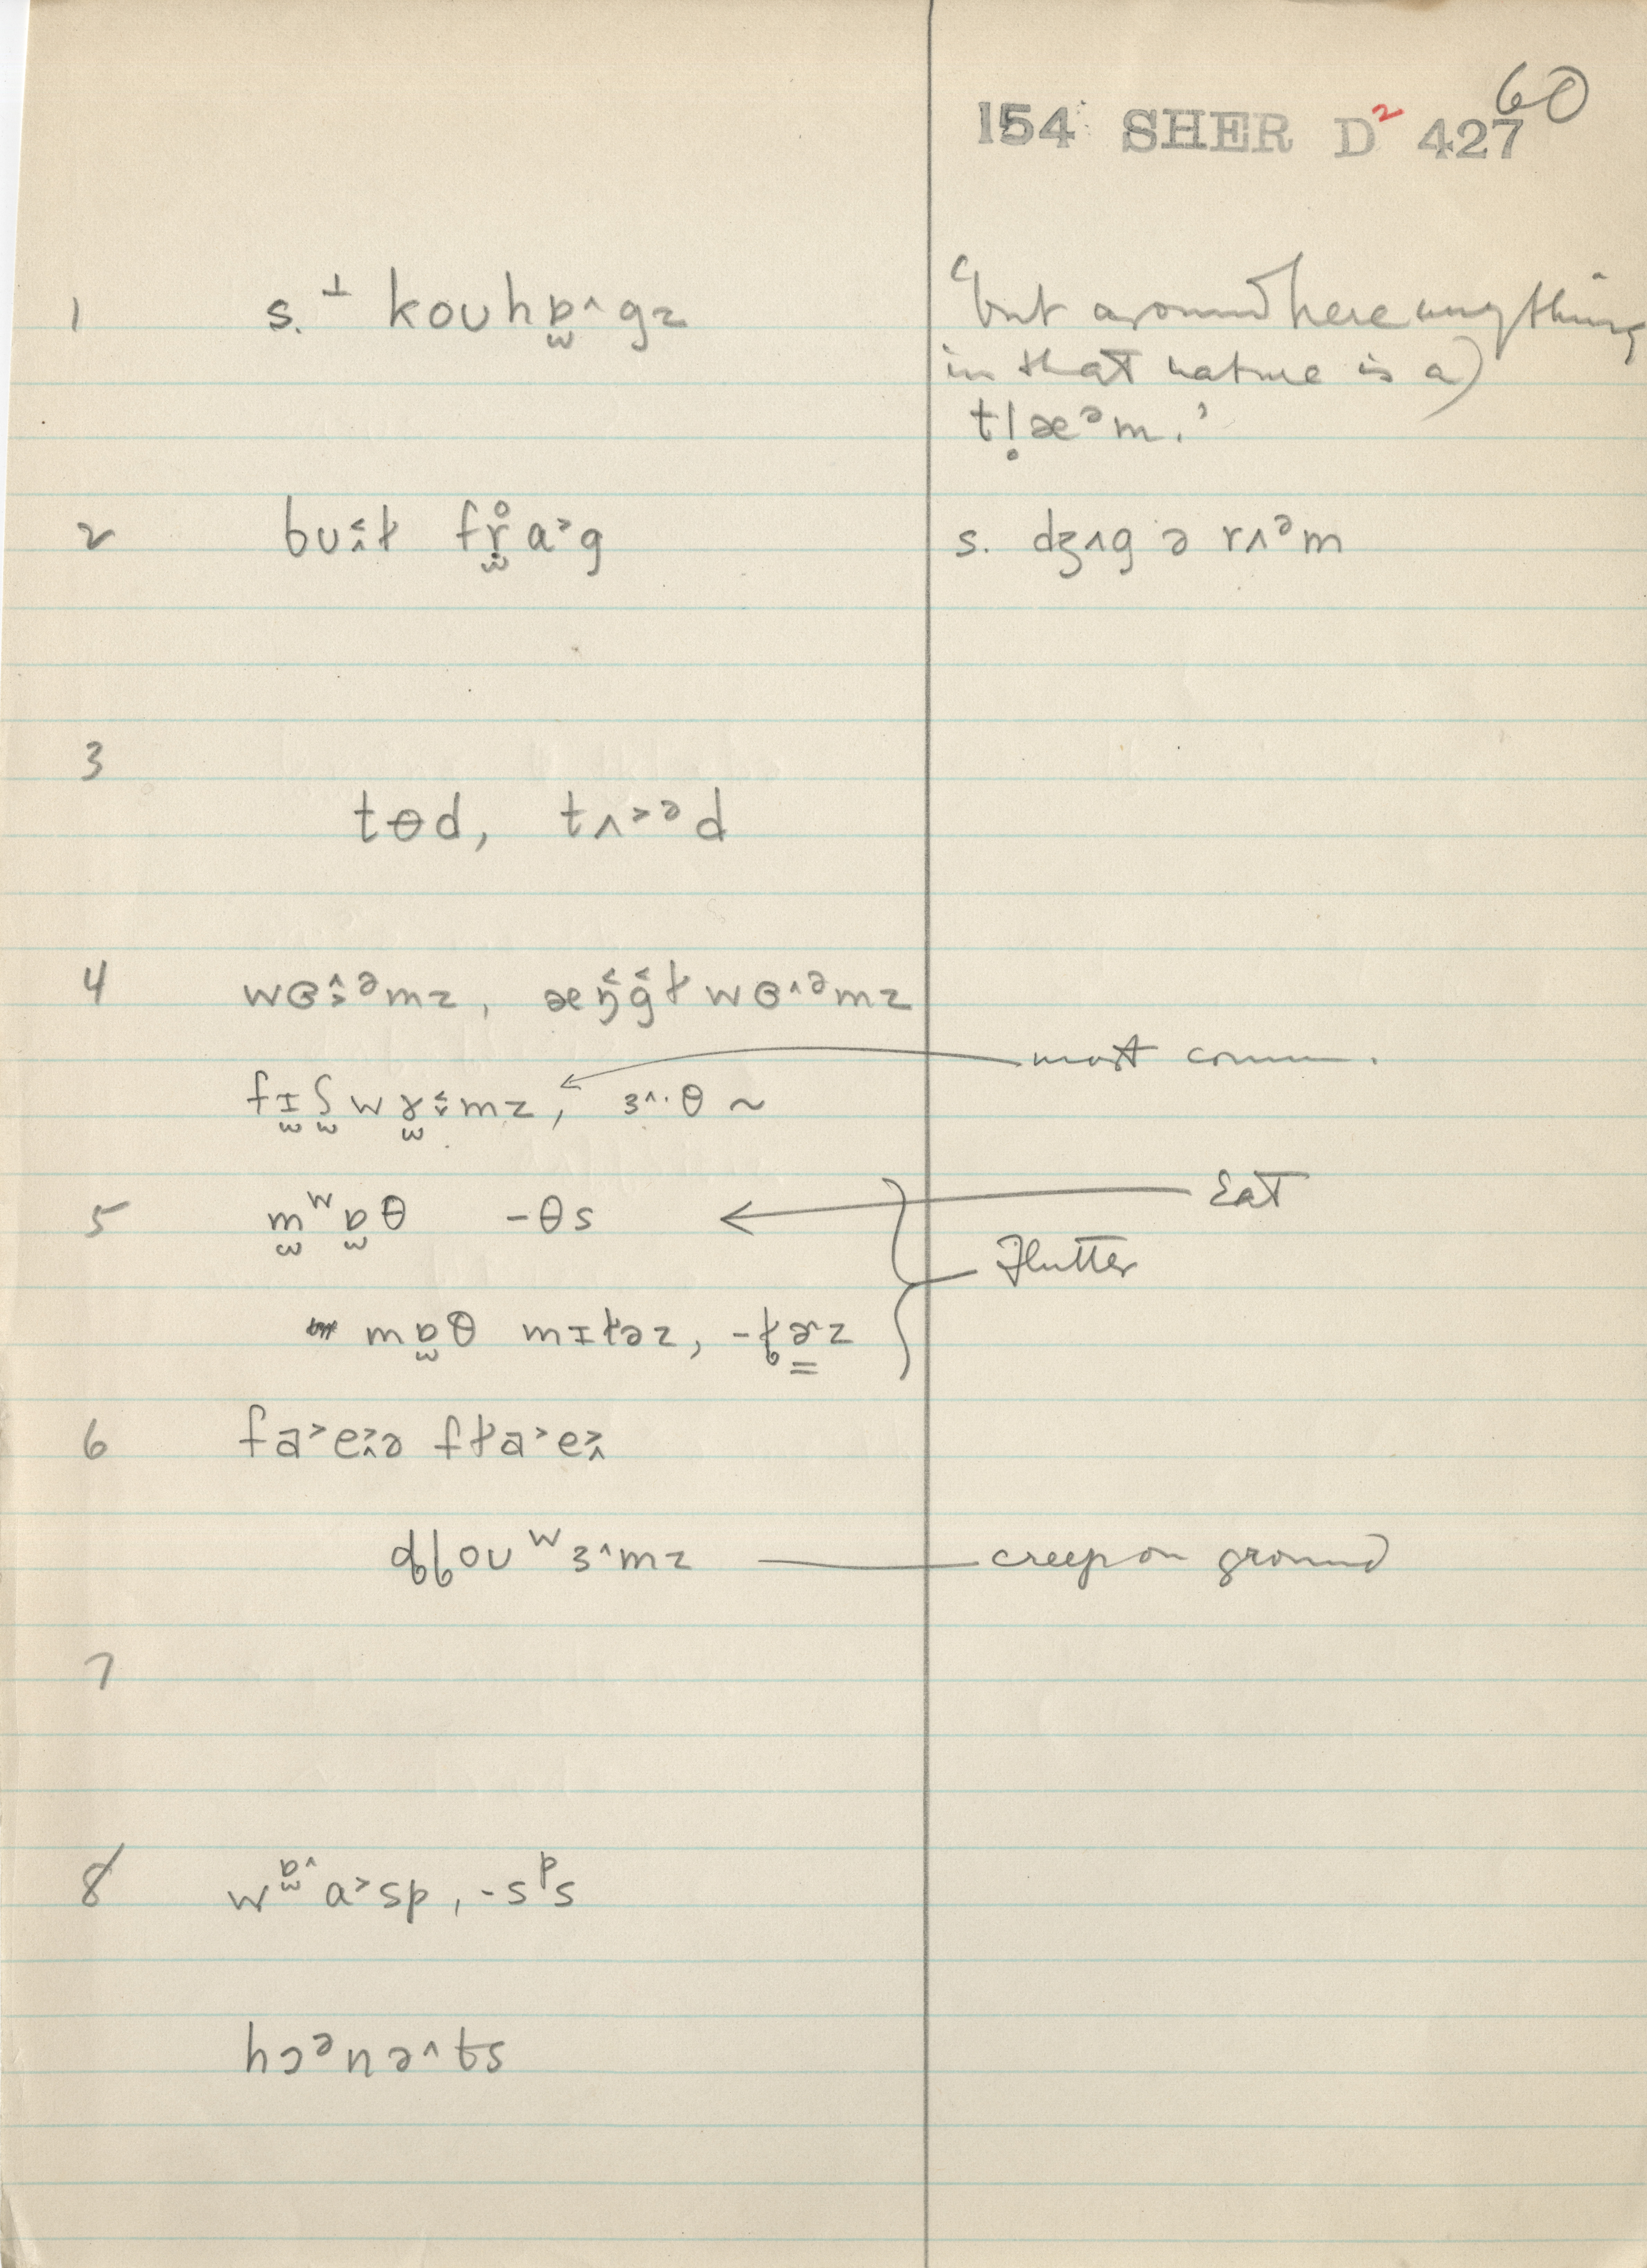 60
154 SHER D² 427
1 s. ⊥ kouhɒ̫^gz (but around here anything
in that nature is a)
t!æᵊm.'
2 buɪɫ fr̫̊a˃g s. dʒʌg ə rʌᵊm
3
tɵd, tʌ˃ᵊd
4 wɞᵊmz, æŋgɫ wɵ^ᵊmz
fɪ̫ʃ̫wɤ̫mz, ɜ^·θ ~ most comm.
5 m̫ʷɒ̫θ -θs Eat
Flutter
mɒ̫θ mɪɫəz, -ɫɚz
6 fa˃eə fɫa˃e
ȡȴouʷɜ^mz creep on ground
7
8 wᶛ^a˃sp, -sᵖs
hɔᵊnə^ts